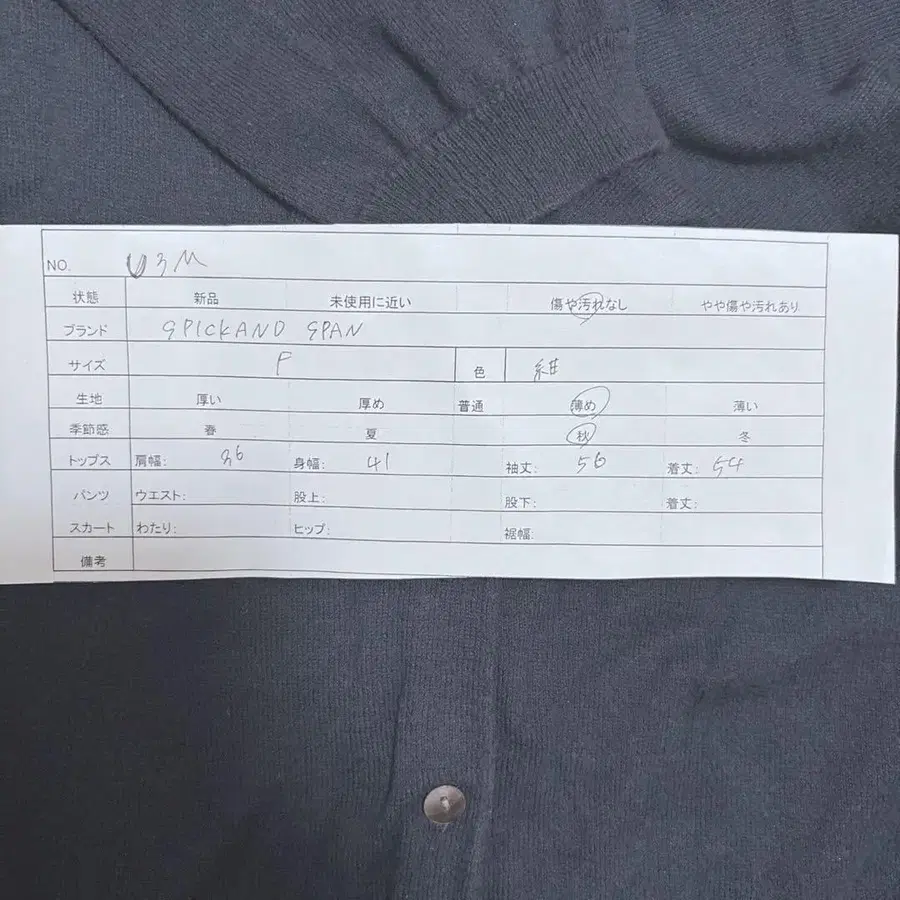 NO. U3M
状態 新品 未使用に近い 傷や汚れなし やや傷や汚れあり
ブランド SPICKAND SPAN
サイズ F 色 紺
生地 厚い 厚め 普通 薄め 薄い
季節感 春 夏 秋 冬
トップス 肩幅: 36 身幅: 41 袖丈: 56 着丈: 54
パンツ ウエスト: 股上: 股下: 着丈:
スカート わたり: ヒップ: 裾幅:
備考